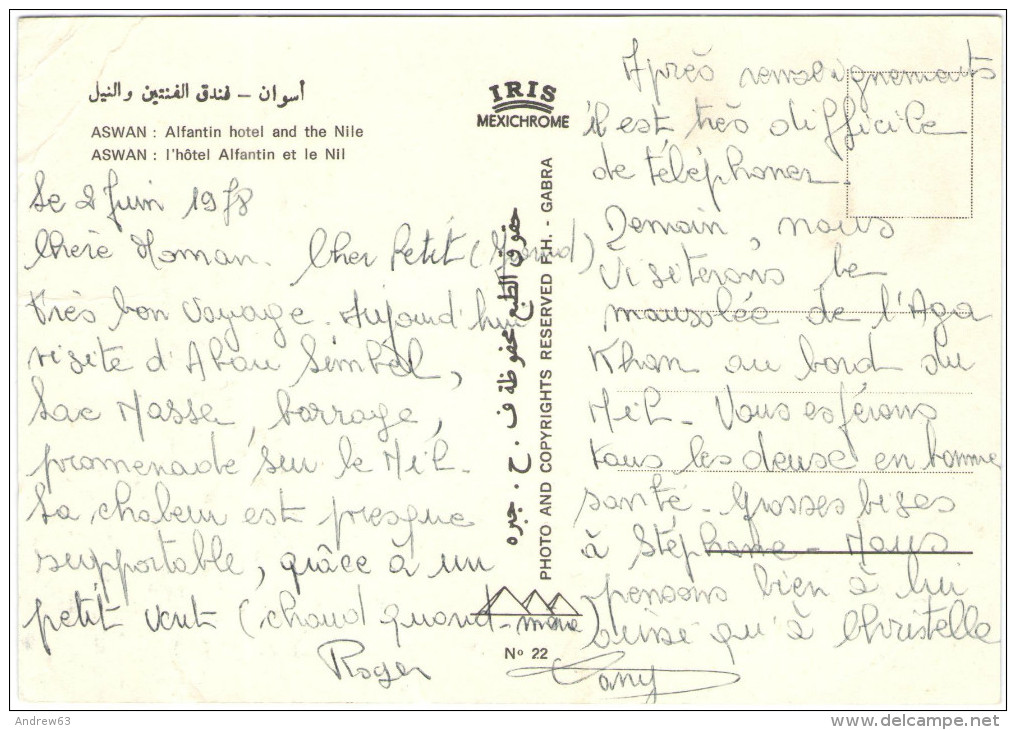 أسوان – فندق الفنتين والنيل
ASWAN : Alfantin hotel and the Nile
ASWAN : l'hôtel Alfantin et le Nil
IRIS
MEXICHROME
Le 2 Juin 1978
Chère Maman. Cher Petit (Grand)
Très bon voyage. Aujourd'hui
visite d'Abou Simbel,
Lac Nasser, barrage,
promenade sur le Nil.
La chaleur est presque
supportable, grâce à un
petit vent (chaud quand-même)
Roger
Après renseignements
il est très difficile
de téléphoner.
Demain, nous
visiterons le
mausolée de l'Aga
Khan au bord du
Nil. Vous espérons
tous les deux en bonne
santé. Grosses bizes
à Stéphane - Nous
pensons bien à lui
aussi qu'à Christelle
Cany
حقوق الطبع محفوظة ف . ح . جبره
PHOTO AND COPYRIGHTS RESERVED F.H. - GABRA
Nº 22
Andrew63
delcampe.net